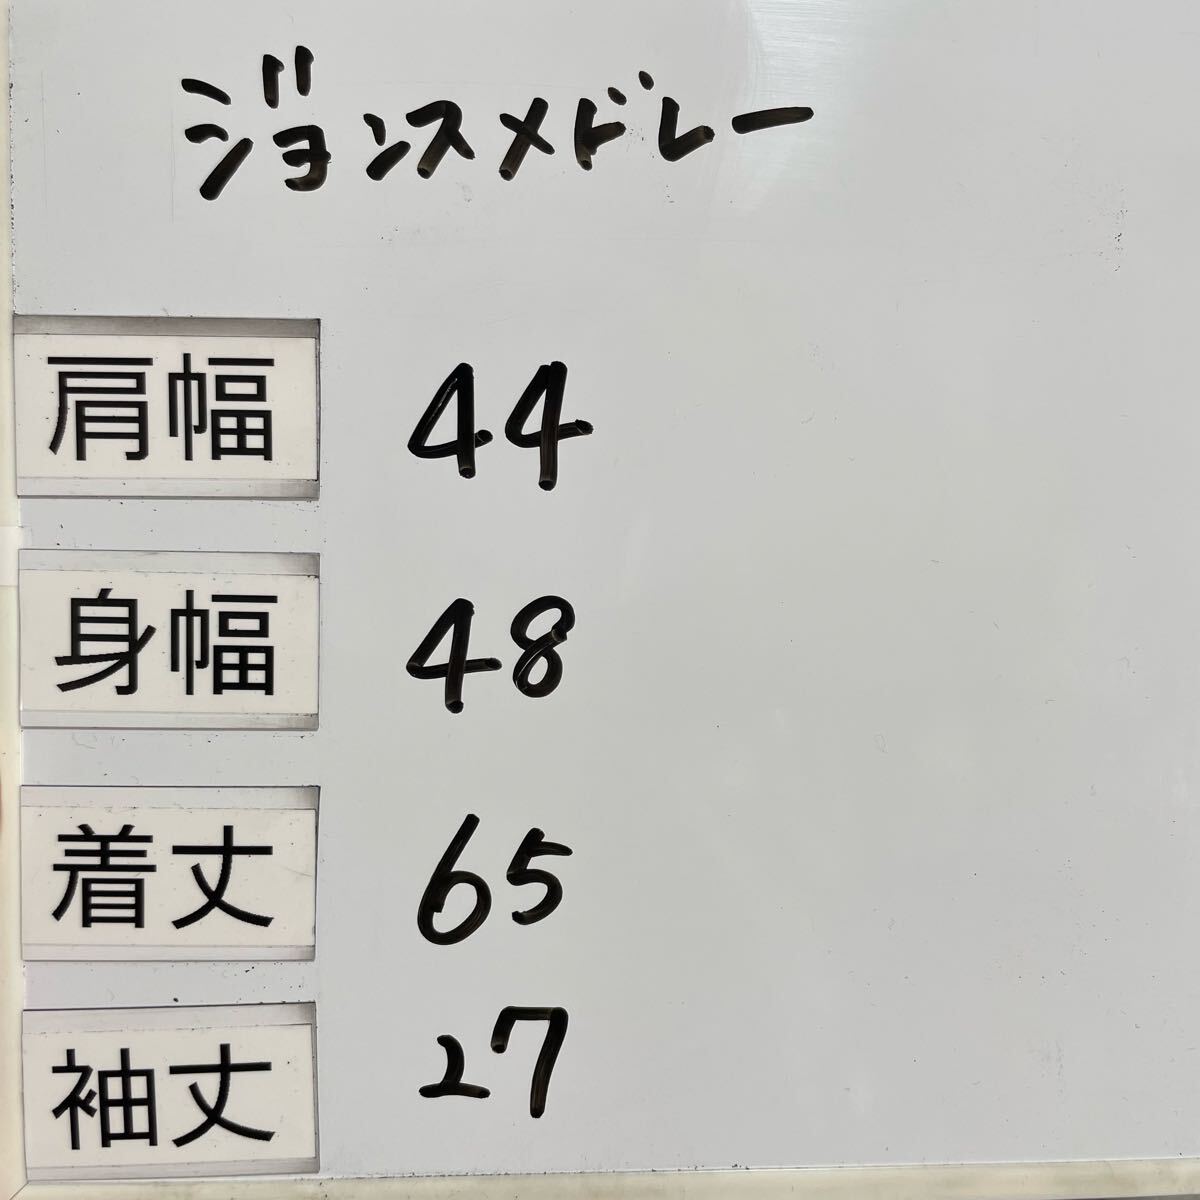 ジョンスメドレー
肩幅 44
身幅 48
着丈 65
袖丈 27